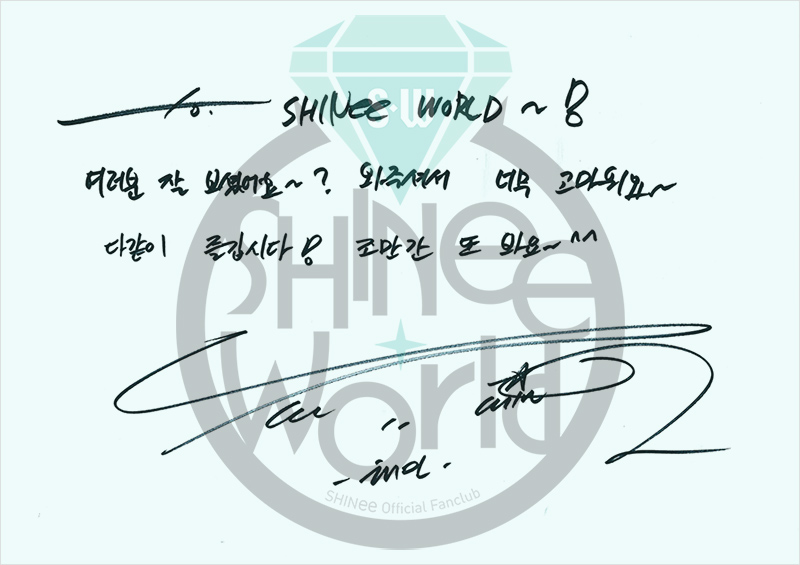 To. SHINee WORLD ~ !
여러분 잘 보셨어요~? 와주셔서 너무 고마워요~
다같이 즐깁시다! 조만간 또 봐요~^^
- 태민 -
S·W
SHINee
World
SHINee Official Fanclub